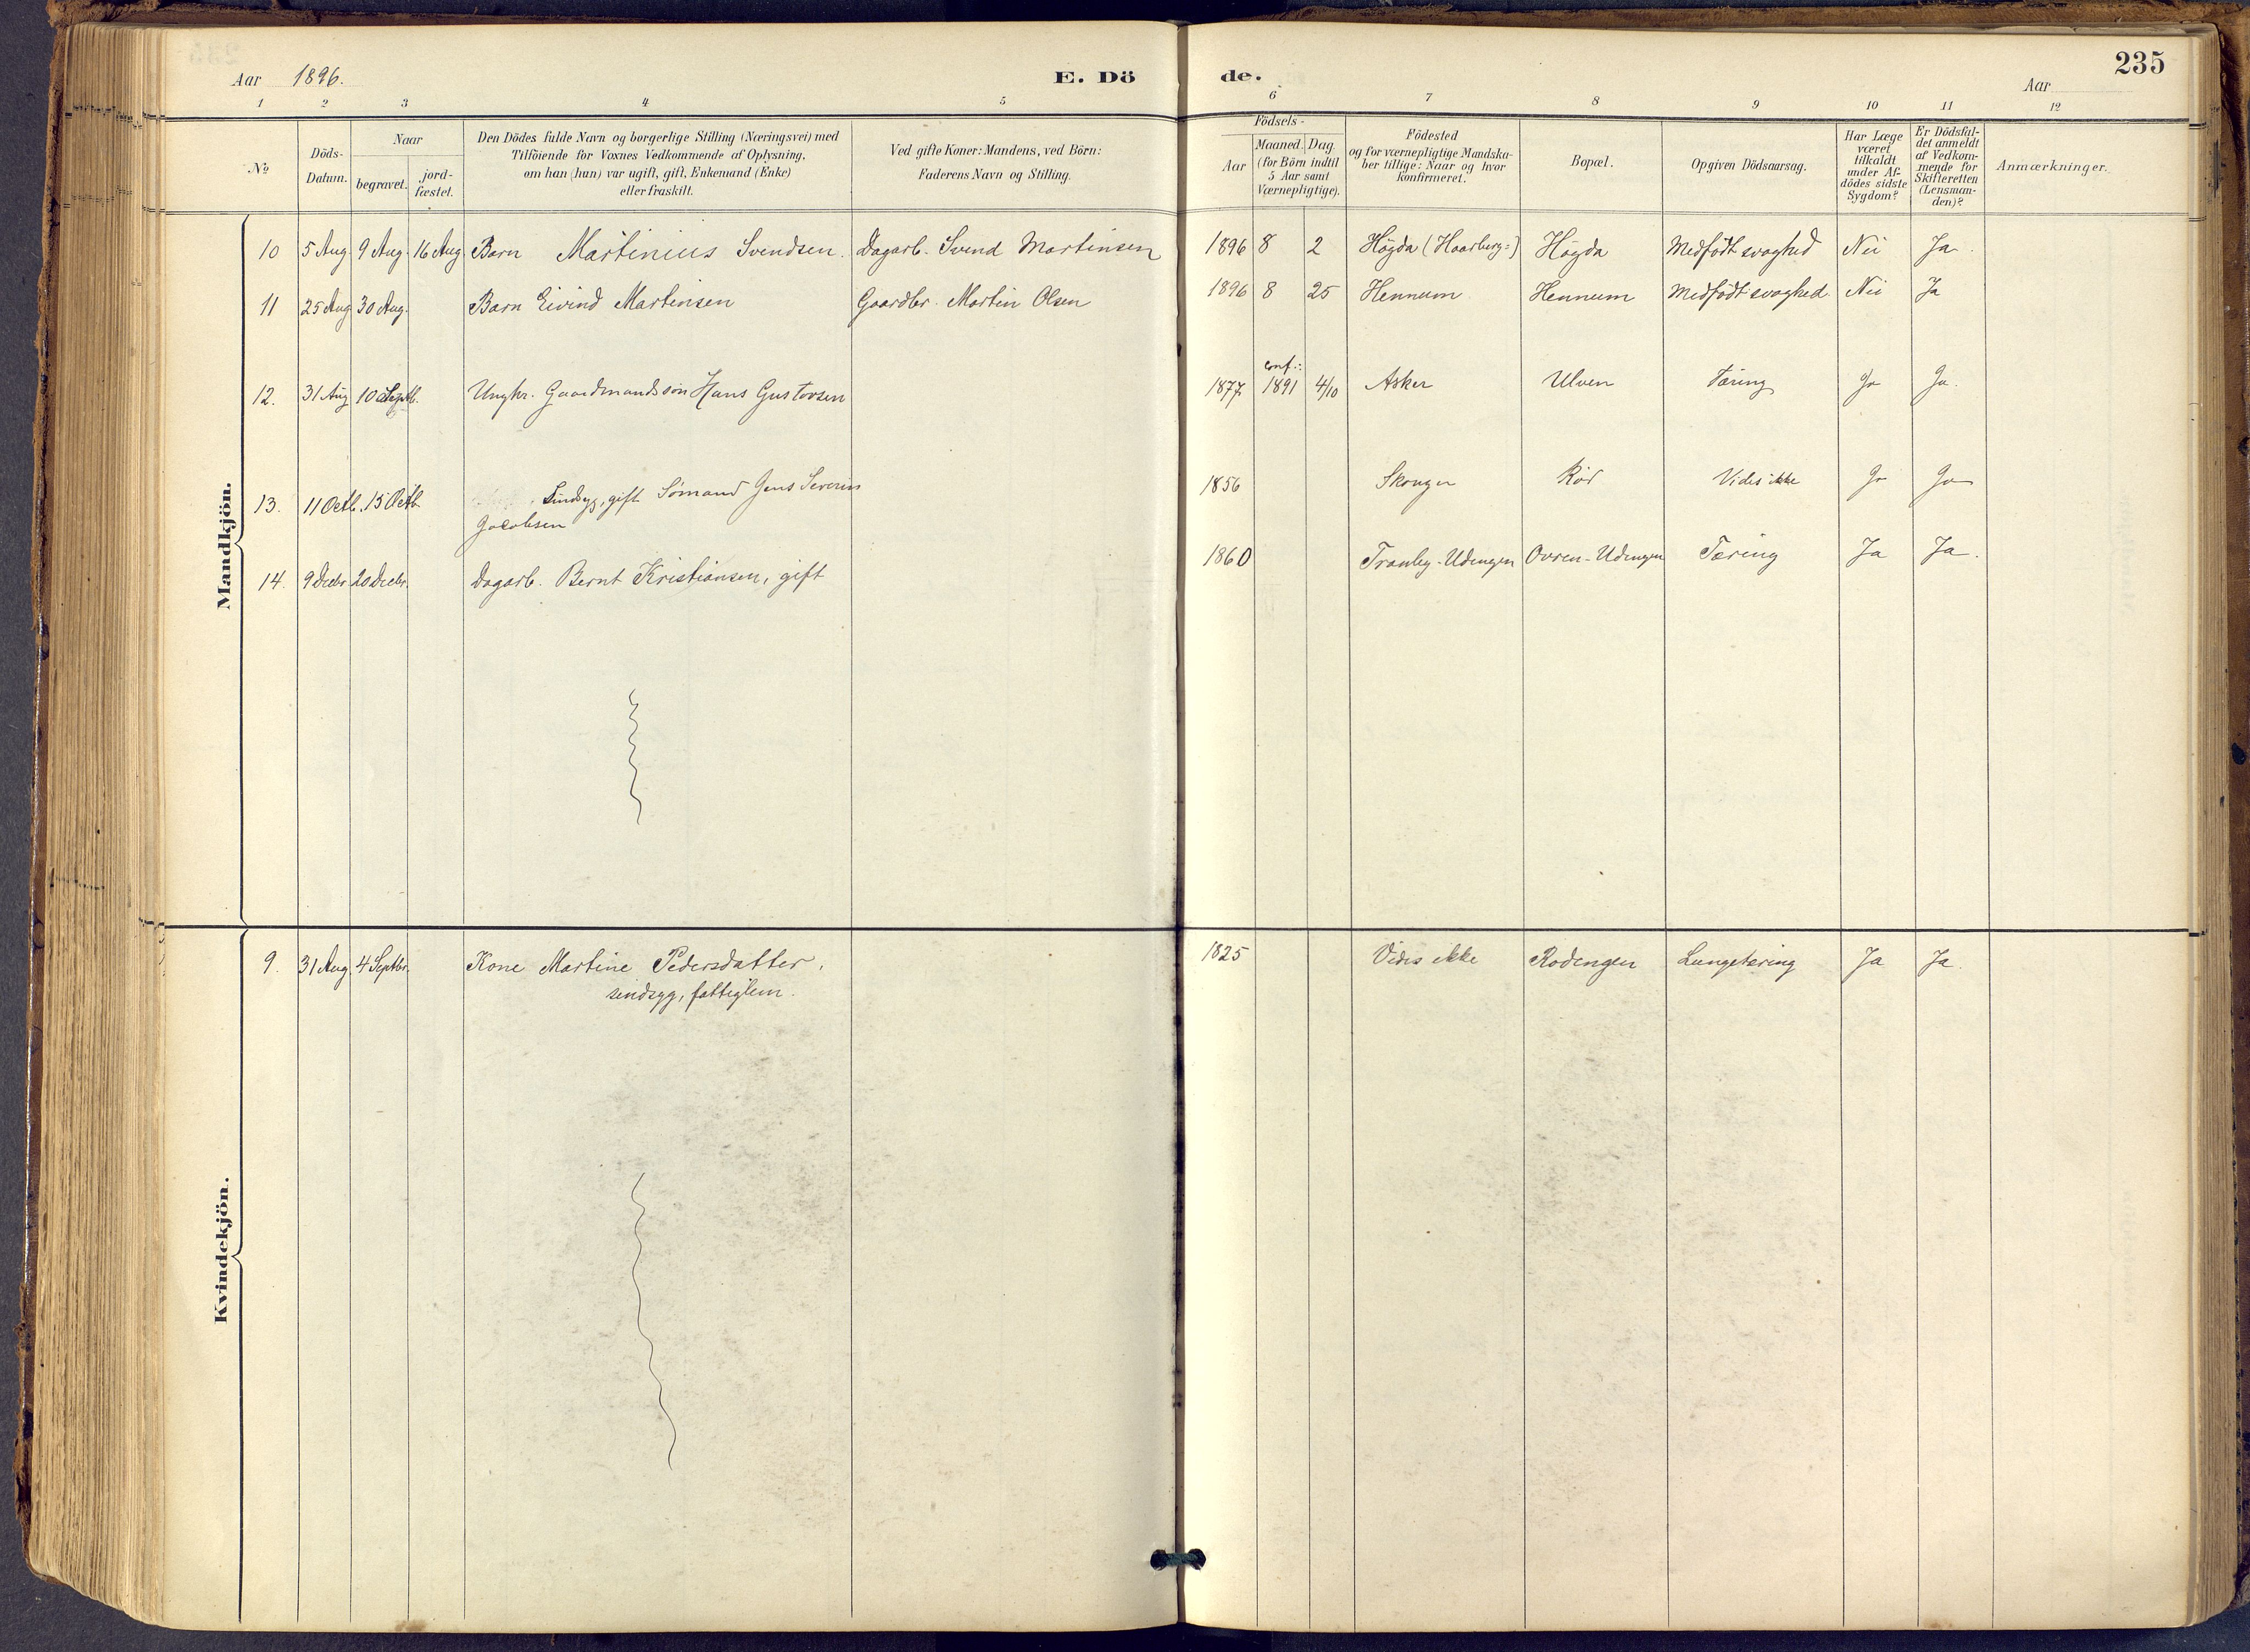 Aar 1896. E. Dö de. Aar 235
1 2 3 4 5 6 7 8 9 10 11 12
No
Döds-Datum.
Naar
begravet.
jord-fæstet.
Den Dödes fulde Navn og borgerlige Stilling (Næringsvei) med
Tilföiende for Voxnes Vedkommende af Oplysning,
om han (hun) var ugift, gift, Enkemand (Enke)
eller fraskilt.
Ved gifte Koner: Mandens, ved Börn:
Faderens Navn og Stilling.
Födsels-
Aar
Maaned. Dag.
(for Börn indtil
5 Aar samt
Værnepligtige).
Födested
og for værnepligtige Mandska-
ber tillige: Naar og hvor
konfirmeret.
Bopæl.
Opgiven Dödsaarsag.
Har Læge
været
tilkaldt
under Af-
dödes sidste
Sygdom?
Er Dödsfal-
det anmeldt
af Vedkom-
mende for
Skifteretten
(Lensman-
den)?
Anmærkninger.
Mandkjön.
10 5 Aug 9 Aug. 16 Aug Barn Martinius Svendsen. Dagarb. Svend Martinsen 1896 8 2 Högda (Haarberg=) Högda Medfödt svaghed Nei Ja.
11 25 Aug 30 Aug. Barn Eivind Martinsen Gaardbr. Martin Olsen 1896 8 25 Hennum Hennum Medfödt svaghed. Nei Ja
12. 31 Aug 10 Septb. Ungkr. Gaardmandssön Hans Gustavsen 1877 conf.: 1891 4/10 Asker Ulven Tæring Ja Ja.
13. 11 Octb. 15 Octb Sindsyg, gift Sömand Jens Severin
Jacobsen 1856 Skouger Röd Vides ikke Ja Ja
14. 9 Decbr 20 Decbr. Dagarb. Bernt Kristiansen, gift 1860 Tranby-Udengen Ovren-Udengen Tæring Ja Ja.
Kvindekjön.
9. 31 Aug. 4 Septbr. Kone Martine Pedersdatter, 1825 Vides ikke Rodengen Lungetæring Ja Ja.
sindsyg, fattiglem.